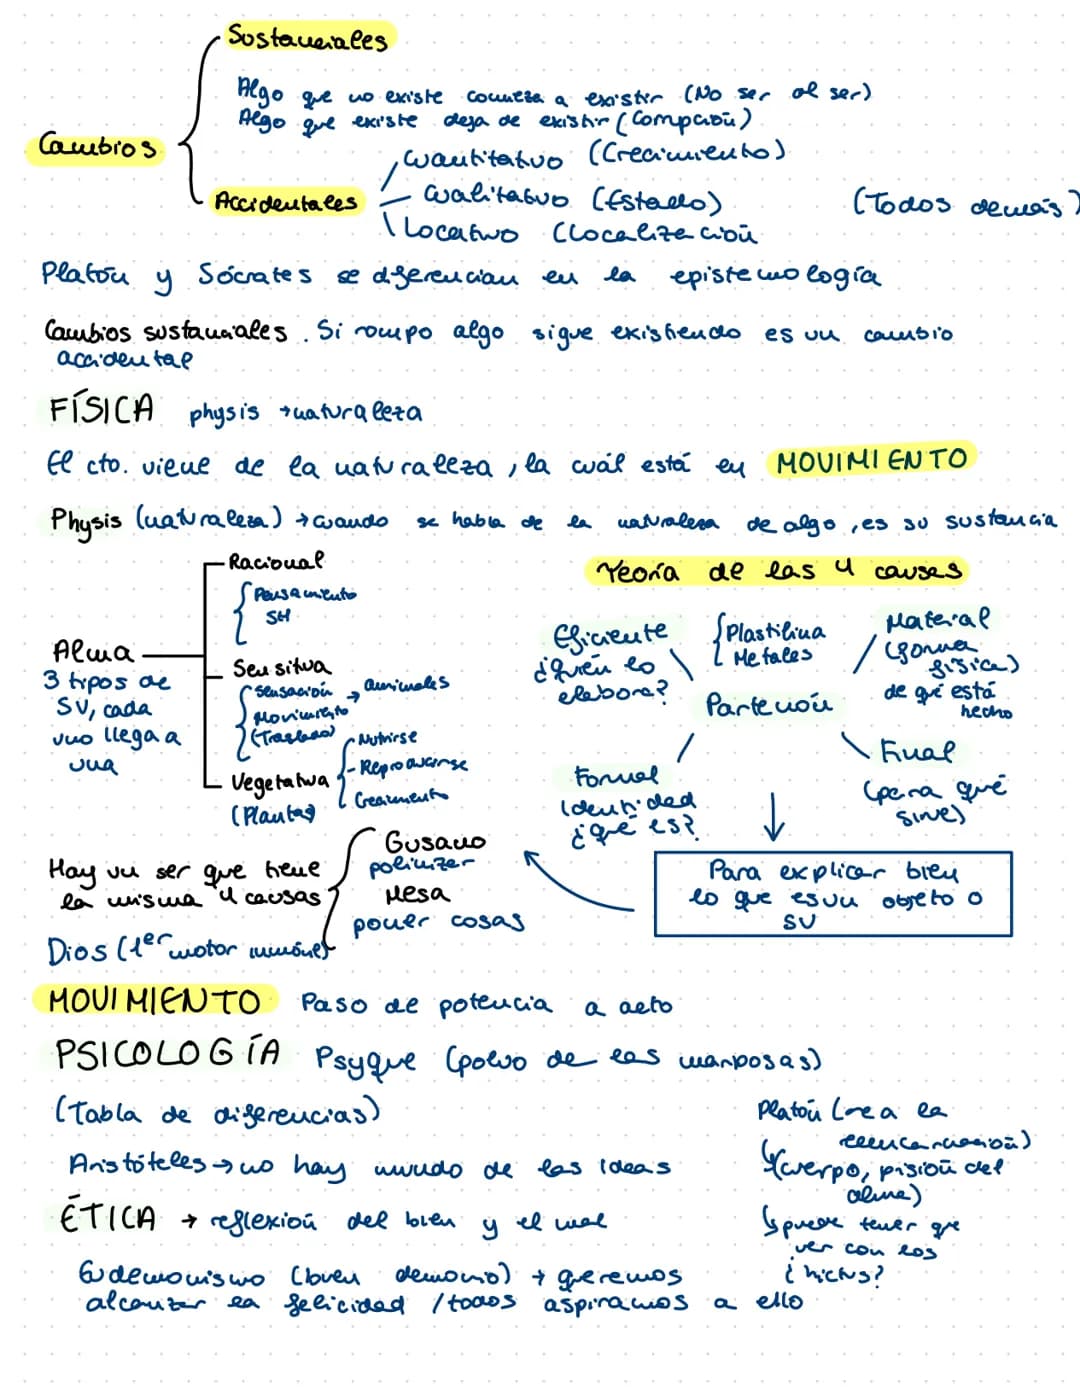 Sustanciales
Algo que no existe comieza a existir (No ser al ser)
Algo que existe deja de existir (
Cambios
Cuantitativo (Crecimiento)
Accidentales
Cualitativo (Estado)
(Todos demás)
Locativo (Localización
Platón y Sócrates se diferencian en la epistemología
Cambios sustanciales. Si rompo algo sigue existiendo es un cambio
accidental
FÍSICA physis → naturaleza
El cto. viene de la naturaleza, la cuál está en MOVIMIENTO
Physis (naturaleza) → cuando se habla de la naturaleza de algo, es su sustancia
Racional
Pensamiento
SH
Alma
3 tipos de
SV, cada
uno llega a
una
Sensitiva
Sensación → animales
Movimiento
(Traslado)
Vegetativa
(Plantas)
Nutrirse
- Reproducirse
Crecimiento
Teoría de las 4 causas
Eficiente
¿quién lo
elabora?
Plastilina
Metales
Material
(forma
física)
de qué está
hecho
Partenón
Formal
Identidad
¿qué es?
Final
(para qué
sirve)
Para explicar bien
lo que es un objeto o
SV
Hay un ser que tiene
la misma 4 causas
Dios (1er motor inmóvel
Gusano
polinizar
Mesa
poner cosas
MOVIMIENTO Paso de potencia a acto
PSICOLOGÍA Psyque (polvo de las mariposas)
(Tabla de diferencias)
Aristóteles → no hay mundo de las Ideas
Platón (rea la
reencarnación)
↳ (cuerpo, prisión del
alma)
↳ puede tener que
ver con los
¿hictus?
ÉTICA → reflexión del bien y el mal
Eudemonismo (buen demonio) → queremos
alcanzar la felicidad / todos aspiramos a ello